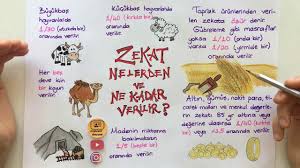 Büyükbaş
hayvanlarda
1/30 (otuzda bir)
oranında
verilir.
Küçükbaş hayvanlarda
1/40 (kırkta bir)
oranında
verilir.
Toprak ürünlerinden
verilen zekata öşür denir.
Gübreleme gibi masraflar
varsa 1/20 (yirmide bir)
yoksa 1/10 (onda bir)
oranında verilir.
ZEKAT
NELERDEN
VE
NE KADAR
VERİLİR?
Her beş
deve için
bir koyun
verilir.
Altın, gümüş, nakit para, ti-
cari malları ve diğer zekata
85 gr altına veya
değerine ulaşırsa 1/40 (kırkta
bir) veya %2.5 oranında
verilir.
Madenin miktarına
bakılmaksızın
1/5 (beşte bir)
oranında verilir.